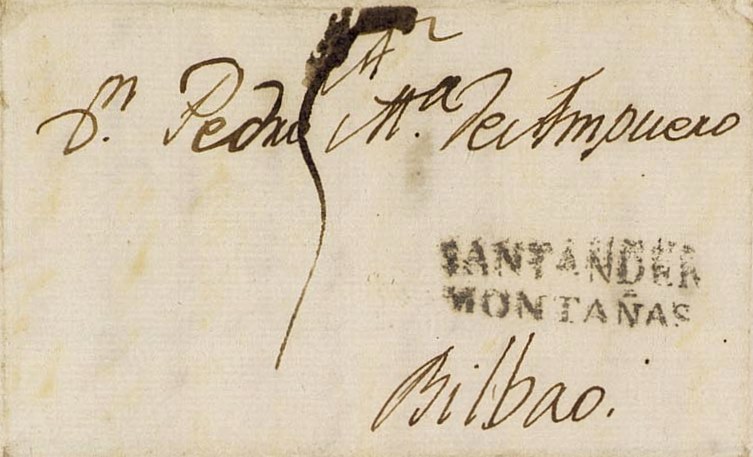 Ar
Dn. Pedro Ma. de Ampuero
5
SANTANDER
MONTAÑAS
Bilbao.